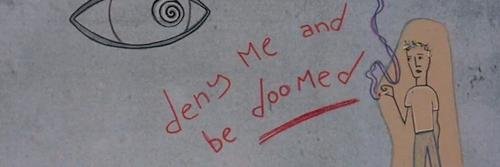 deny Me and
be dooMed